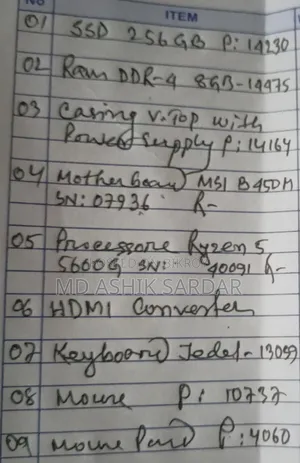 No ITEM
01 SSD 256GB P: 14230
02 Ram DDR-4 8GB-14475
03 Casing V.Top with
Power Supply P: 14164
04 Mother board MSI B450M
SN: 07936 R-
05 Processore Ryzen 5
5600G SN: 40091 R-
MD ASHIK SARDAR
06 HDMI Converter
07 Keyboard Jedel-13097
08 Mouse P: 10737
09 Mouse Pad P: 4060